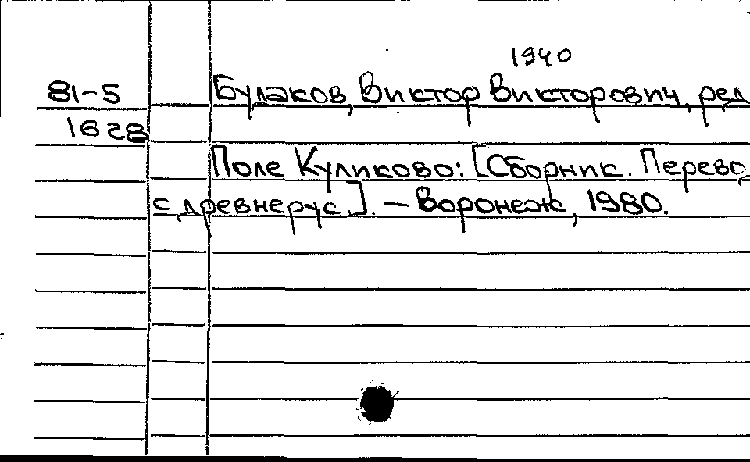 1940
81-5 Будаков, Виктор Викторович, ред
1628
Поле Куликово: [Сборник. Перево
с древнерус.]. - Воронеж, 1980.